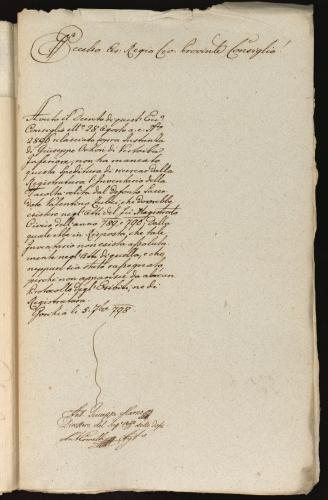 Eccelso Ces. Regio Cap. Provinle Consiglio!
Avuto il Decreto di quest' Eccelso
Consiglio 28 Agosto a. c. No
2846 rilasciato sopra Instanza
di Giuseppe di
Inferiore, non ha mancato
questa Speditura di ricercar dalla
Registratura l'Inventario della
Facoltà relitta dal Deponto Sacer
dote Valentino che dovrebbe
esistere negl'Atti del fu Magistrato
Civico dell'anno 789, e 790, Dalla
quale ebbe in Risposta, che tale
Inventario non esista assoluta
mente negl'Atti di quello, e che
neppure sia stato rassegnato,
perché non apparisce da alcun
Protocollo degl'Esibiti, ne di
Registratura.
Gorizia li 5. 7bre 798
Giuseppe
Direttore del